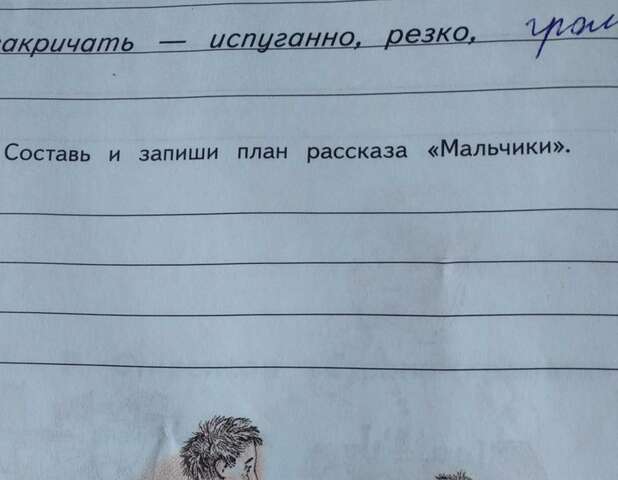 закричать — испуганно, резко, гром
Составь и запиши план рассказа «Мальчики».